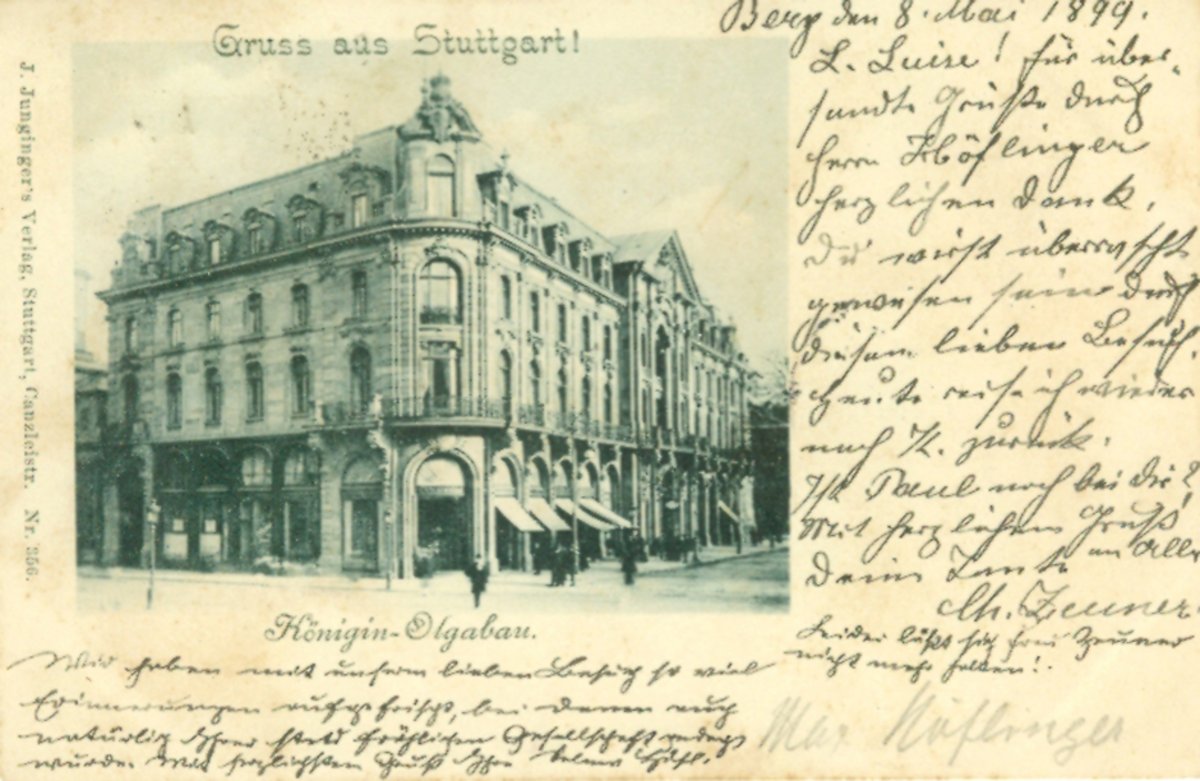 Gruss aus Stuttgart!
Berg den 8. Mai 1899.
L. Luise! für über-
sandte Grüße durch
Herrn Höflinger
herzlichen Dank.
Du wirst überrascht
gewesen sein durch
diesen lieben Besuch.
Heute reise ich wieder
nach K. zurück.
Ist Paul noch bei dir?
Mit herzlichem Gruß
an Alle
Deine Tante
Ch. Zeuner
Leider läßt sich Frau Zeuner
nicht mehr halten!
J. Junginger's Verlag, Stuttgart, Canzleistr. Nr. 356.
Königin-Olgabau.
Wir haben mit unserm lieben Besuch so viel
Erinnerungen aufgefrischt, bei denen auch
natürlich Ihrer stets fröhlichen Gesellschaft
wurde. Mit herzlichstem Gruß Ihre
Max Höflinger